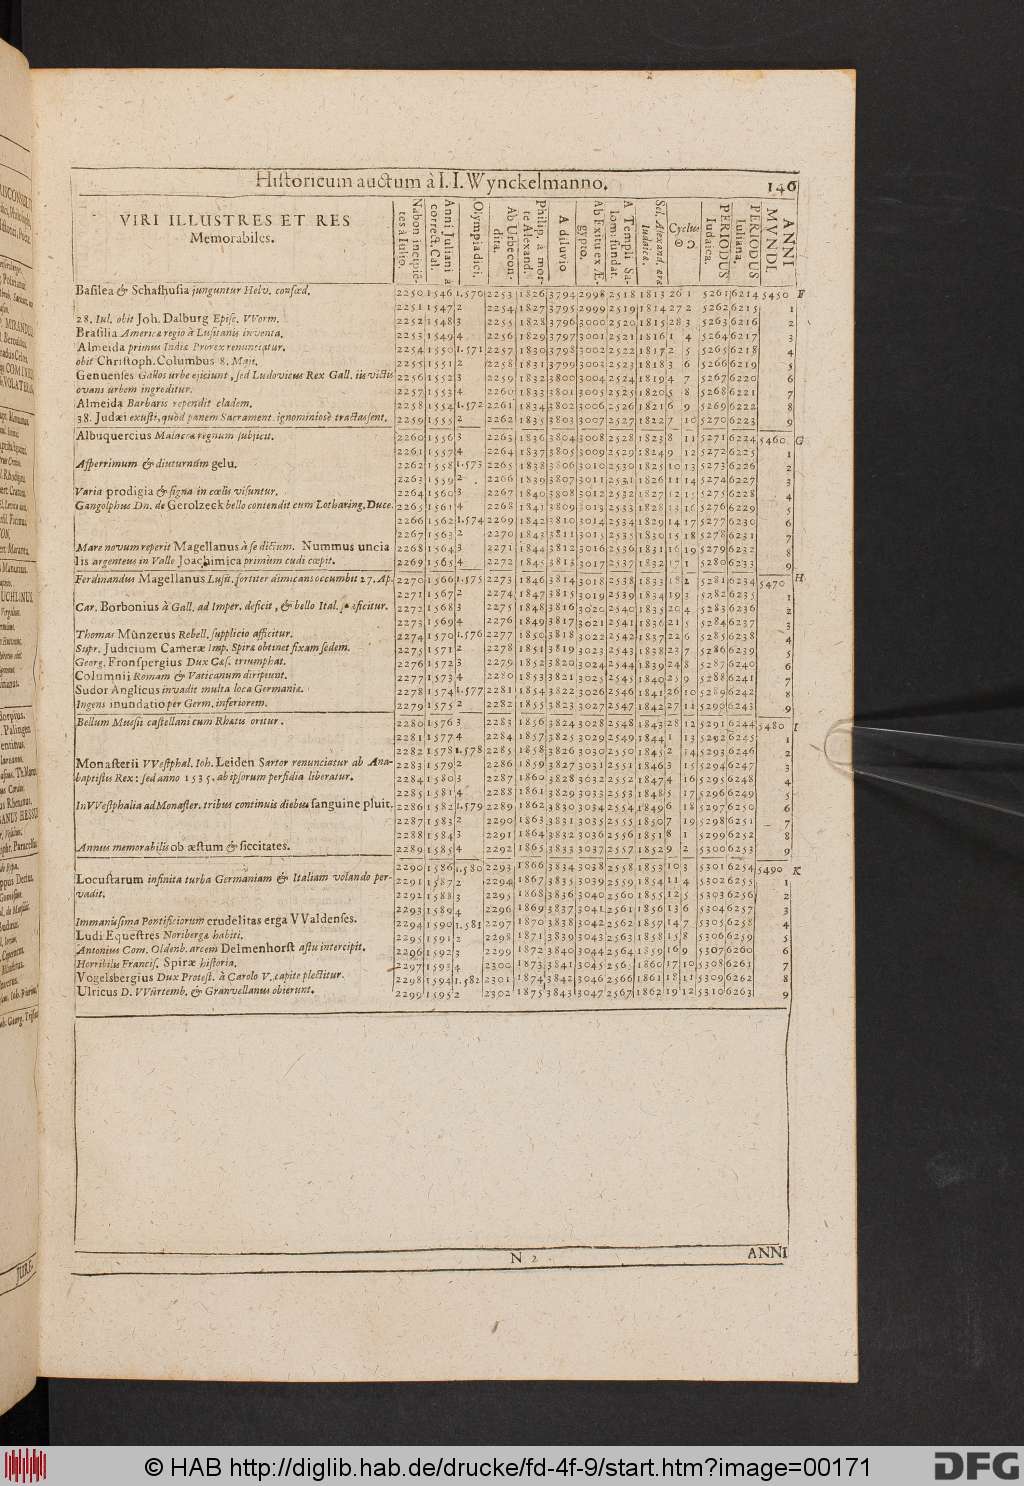 Historicum auctum à I. I. Wynckelmanno. 146
VIRI ILLUSTRES ET RES
Memorabiles.
Nabon incipiē-
tes à Iulio.
Anni Juliani à
correct. Cal.
Olympiadici.
Ab Urbe con-
dita.
Philip. à mor-
te Alexand.
A diluvio
Ab Exitu ex Æ-
gypto.
A Templi Sa-
lom: fundat.
Sel. Alexand. æra
Iudaica.
Cyclus
☉ ☽
PERIODUS
Iudaica.
PERIODUS
Iuliana.
ANNI
MVNDI.
Basilea & Schafhusia junguntur Helv. confœd. 2250 1546 1.570 2253 1826 3794 2998 2518 1813 26 1 5261 6214 5450 F
2251 1547 2 2254 1827 3795 2999 2519 1814 27 2 5262 6215 1
28. Iul. obit Joh. Dalburg Episc. VVorm. 2252 1548 3 2255 1828 3796 3000 2520 1815 28 3 5263 6216 2
Brasilia Americæ regio à Lusitanis inventa. 2253 1549 4 2256 1829 3797 3001 2521 1816 1 4 5264 6217 3
Almeida primus Indiæ Prorex renunciatur. 2254 1550 1.571 2257 1830 3798 3002 2522 1817 2 5 5265 6218 4
obit Christoph. Columbus 8. Maji. 2255 1551 2 2258 1831 3799 3003 2523 1818 3 6 5266 6219 5
Genuenses Gallos urbe ejiciunt, sed Ludovicus Rex Gall. iis victis 2256 1552 3 2259 1832 3800 3004 2524 1819 4 7 5267 6220 6
ovans urbem ingreditur. 2257 1553 4 2260 1833 3801 3005 2525 1820 5 8 5268 6221 7
Almeida Barbaris rependit cladem. 2258 1554 1.572 2261 1834 3802 3006 2526 1821 6 9 5269 6222 8
38. Judæi exusti, quòd panem Sacrament. ignominiosè tractassent. 2259 1555 2 2262 1835 3803 3007 2527 1822 7 10 5270 6223 9
Albuquercius Malaccæ regnum subjicit. 2260 1556 3 2263 1836 3804 3008 2528 1823 8 11 5271 6224 5460 G
2261 1557 4 2264 1837 3805 3009 2529 1824 9 12 5272 6225 1
Asperrimum & diuturnum gelu. 2262 1558 1.573 2265 1838 3806 3010 2530 1825 10 13 5273 6226 2
2263 1559 2 2266 1839 3807 3011 2531 1826 11 14 5274 6227 3
Varia prodigia & signa in cœlis visuntur. 2264 1560 3 2267 1840 3808 3012 2532 1827 12 15 5275 6228 4
Gangolphus Dn. de Gerolzeck bello contendit cum Lotharing. Duce. 2265 1561 4 2268 1841 3809 3013 2533 1828 13 16 5276 6229 5
2266 1562 1.574 2269 1842 3810 3014 2534 1829 14 17 5277 6230 6
2267 1563 2 2270 1843 3811 3015 2535 1830 15 18 5278 6231 7
Mare novum reperit Magellanus à se dictum. Nummus uncia 2268 1564 3 2271 1844 3812 3016 2536 1831 16 19 5279 6232 8
lis argenteus in Valle Joachimica primum cudi cœpit. 2269 1565 4 2272 1845 3813 3017 2537 1832 17 1 5280 6233 9
Ferdinandus Magellanus Lusit. fortiter dimicans occumbit 27. Ap. 2270 1566 1.575 2273 1846 3814 3018 2538 1833 18 2 5281 6234 5470 H
2271 1567 2 2274 1847 3815 3019 2539 1834 19 3 5282 6235 1
Car. Borbonius à Gall. ad Imper. deficit, & bello Ital. præficitur. 2272 1568 3 2275 1848 3816 3020 2540 1835 20 4 5283 6236 2
2273 1569 4 2276 1849 3817 3021 2541 1836 21 5 5284 6237 3
Thomas Münzerus Rebell. supplicio afficitur. 2274 1570 1.576 2277 1850 3818 3022 2542 1837 22 6 5285 6238 4
Supr. Judicium Cameræ Imp. Spiræ obtinet fixam sedem. 2275 1571 2 2278 1851 3819 3023 2543 1838 23 7 5286 6239 5
Georg. Fronspergius Dux Cæs. triumphat. 2276 1572 3 2279 1852 3820 3024 2544 1839 24 8 5287 6240 6
Columnii Romam & Vaticanum diripiunt. 2277 1573 4 2280 1853 3821 3025 2545 1840 25 9 5288 6241 7
Sudor Anglicus invadit multa loca Germaniæ. 2278 1574 1.577 2281 1854 3822 3026 2546 1841 26 10 5289 6242 8
Ingens inundatio per Germ. inferiorem. 2279 1575 2 2282 1855 3823 3027 2547 1842 27 11 5290 6243 9
Bellum Mussii castellani cum Rhætis oritur. 2280 1576 3 2283 1856 3824 3028 2548 1843 28 12 5291 6244 5480 I
2281 1577 4 2284 1857 3825 3029 2549 1844 1 13 5292 6245 1
2282 1578 1.578 2285 1858 3826 3030 2550 1845 2 14 5293 6246 2
Monasterii VVestphal. Ioh. Leiden Sartor renunciatur ab Ana- 2283 1579 2 2286 1859 3827 3031 2551 1846 3 15 5294 6247 3
baptistis Rex: sed anno 1535. ab ipsorum perfidia liberatur. 2284 1580 3 2287 1860 3828 3032 2552 1847 4 16 5295 6248 4
2285 1581 4 2288 1861 3829 3033 2553 1848 5 17 5296 6249 5
In VVestphalia ad Monaster. tribus continuis diebus sanguine pluit. 2286 1582 1.579 2289 1862 3830 3034 2554 1849 6 18 5297 6250 6
2287 1583 2 2290 1863 3831 3035 2555 1850 7 19 5298 6251 7
2288 1584 3 2291 1864 3832 3036 2556 1851 8 1 5299 6252 8
Annus memorabilis ob æstum & siccitates. 2289 1585 4 2292 1865 3833 3037 2557 1852 9 2 5300 6253 9
2290 1586 1.580 2293 1866 3834 3038 2558 1853 10 3 5301 6254 5490 K
Locustarum infinita turba Germaniam & Italiam volando per- 2291 1587 2 2294 1867 3835 3039 2559 1854 11 4 5302 6255 1
vadit. 2292 1588 3 2295 1868 3836 3040 2560 1855 12 5 5303 6256 2
2293 1589 4 2296 1869 3837 3041 2561 1856 13 6 5304 6257 3
Immanissima Pontificiorum crudelitas erga VValdenses. 2294 1590 1.581 2297 1870 3838 3042 2562 1857 14 7 5305 6258 4
Ludi Equestres Noribergæ habiti. 2295 1591 2 2298 1871 3839 3043 2563 1858 15 8 5306 6259 5
Antonius Com. Oldenb. arcem Delmenhorst astu intercipit. 2296 1592 3 2299 1872 3840 3044 2564 1859 16 9 5307 6260 6
Horribilis Francisc. Spiræ historia. 2297 1593 4 2300 1873 3841 3045 2565 1860 17 10 5308 6261 7
Vogelsbergius Dux Protest. à Carolo V. capite plectitur. 2298 1594 1.582 2301 1874 3842 3046 2566 1861 18 11 5309 6262 8
Ulricus D. VVürtemb. & Granvellanus obierunt. 2299 1595 2 2302 1875 3843 3047 2567 1862 19 12 5310 6263 9
N 2 ANNI
JURE
© HAB http://diglib.hab.de/drucke/fd-4f-9/start.htm?image=00171
DFG